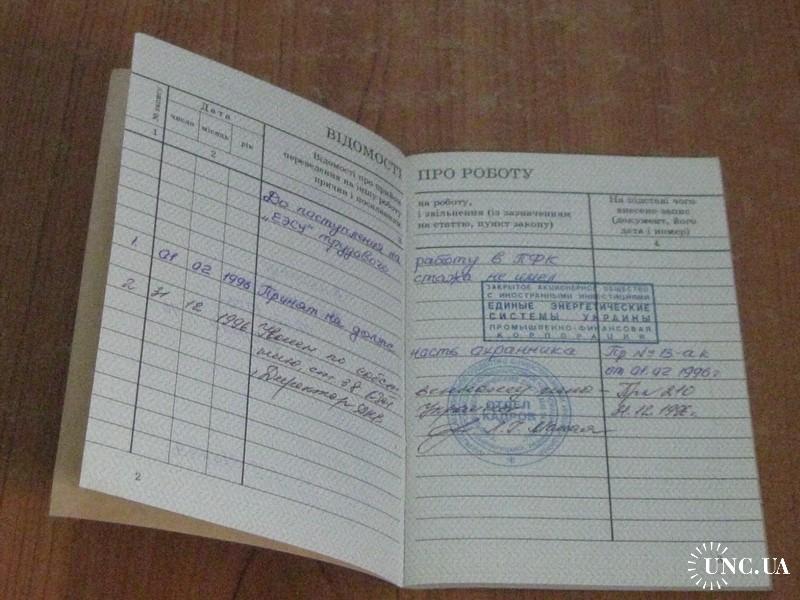 ВІДОМОСТІ
ПРО РОБОТУ
№ запису
Дата
число
місяць
рік
Відомості про прийом
переведення на іншу роботу
причин і посиланням
на роботу,
і звільнення (із зазначенням
на статтю, пункт закону)
На підставі чого
внесено запис
(документ, його
дата і номер)
1
2
3
4
До поступления на работу в ПФК
„ЕЭСУ" трудового стажа не имел
ЗАКРЫТОЕ АКЦИОНЕРНОЕ ОБЩЕСТВО
С ИНОСТРАННЫМИ ИНВЕСТИЦИЯМИ
ЕДИНЫЕ ЭНЕРГЕТИЧЕСКИЕ
СИСТЕМЫ УКРАИНЫ
ПРОМЫШЛЕННО-ФИНАНСОВАЯ
КОРПОРАЦИЯ
1. 01 02 1996 Принят на долж-
ность охранника Пр № 13-ак
от 01.02 1996г
2 31 12 1996 Уволен по собст-
венному Пр 210
ст. 38 31.12.1996г.
Директор
ОТДЕЛ
КАДРОВ
2
UNC.UA